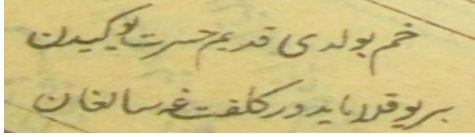 خم بولدی قدیم حسرت یوکیدن
بر یوقلابدور کلفت غه سالغان